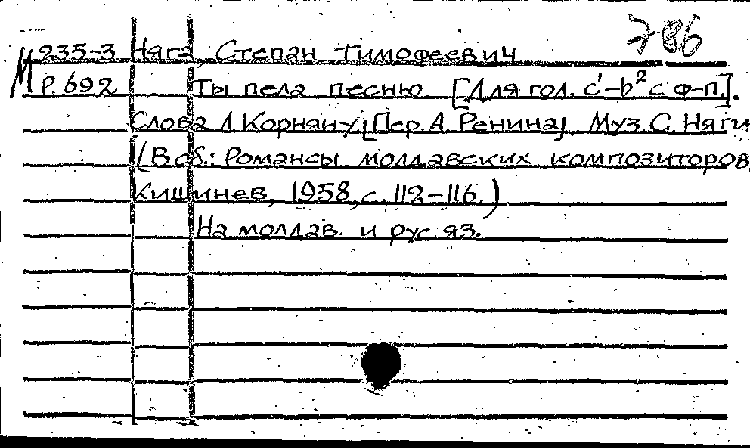 786
235-3 Няга, Степан Тимофеевич
М Р.692 Ты пела песню. [Для гол. c¹-b² с ф-п.].
Слова Л. Корняну [Пер. А. Ренина]. Муз. С. Няги
(В сб.: Романсы молдавских композиторов,
Кишинев, 1958, с. 112-116.)
На молдав. и рус. яз.